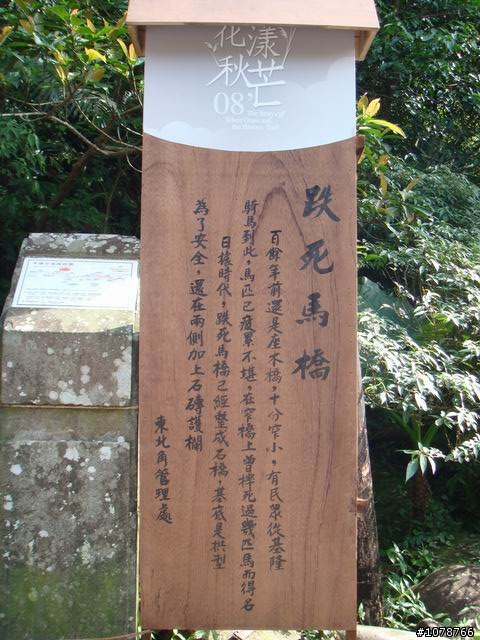 花漾
秋芒
08'
The Story of
Silver Grass and
the Historic Trail
跌死馬橋
百餘年前還是座木橋,十分窄小,有民眾從基隆
騎馬到此,馬匹已疲累不堪,在窄橋上曾摔死過幾匹馬而得名
日據時代,跌死馬橋已經整成石橋,基底是拱型
為了安全,還在兩側加上石磚護欄
東北角管理處
#1078766